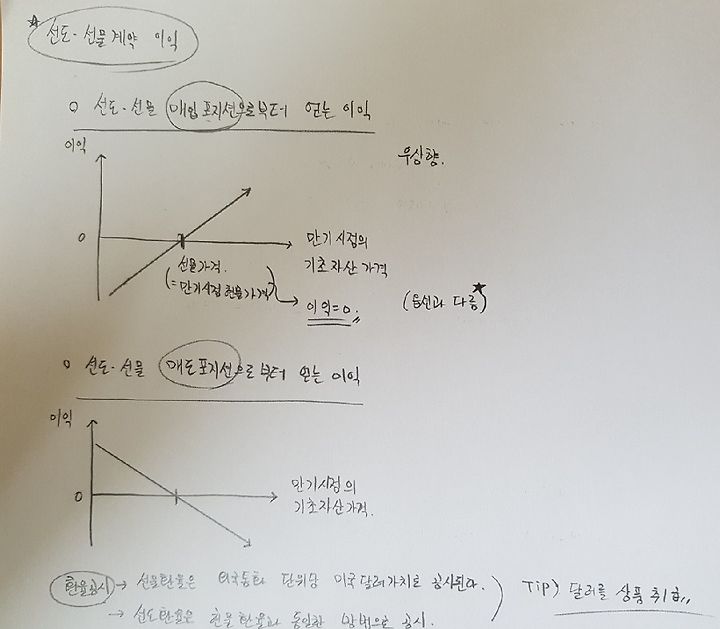 ☆ 선도·선물계약 이익
○ 선도·선물 매입포지션으로부터 얻는 이익
이익
우상향.
0
만기시점의
기초자산 가격
선물가격.
(=만기시점 현물가격)
이익=0.
(옵션과 다름)★
○ 선도·선물 매도포지션으로부터 얻는 이익
이익
0
만기시점의
기초자산가격.
환율공시 → 선물환율은 외국통화 단위당 미국달러가치로 공시된다.
→ 선도환율은 현물환율과 동일한 방법으로 공시.
Tip) 달러를 상품 취급